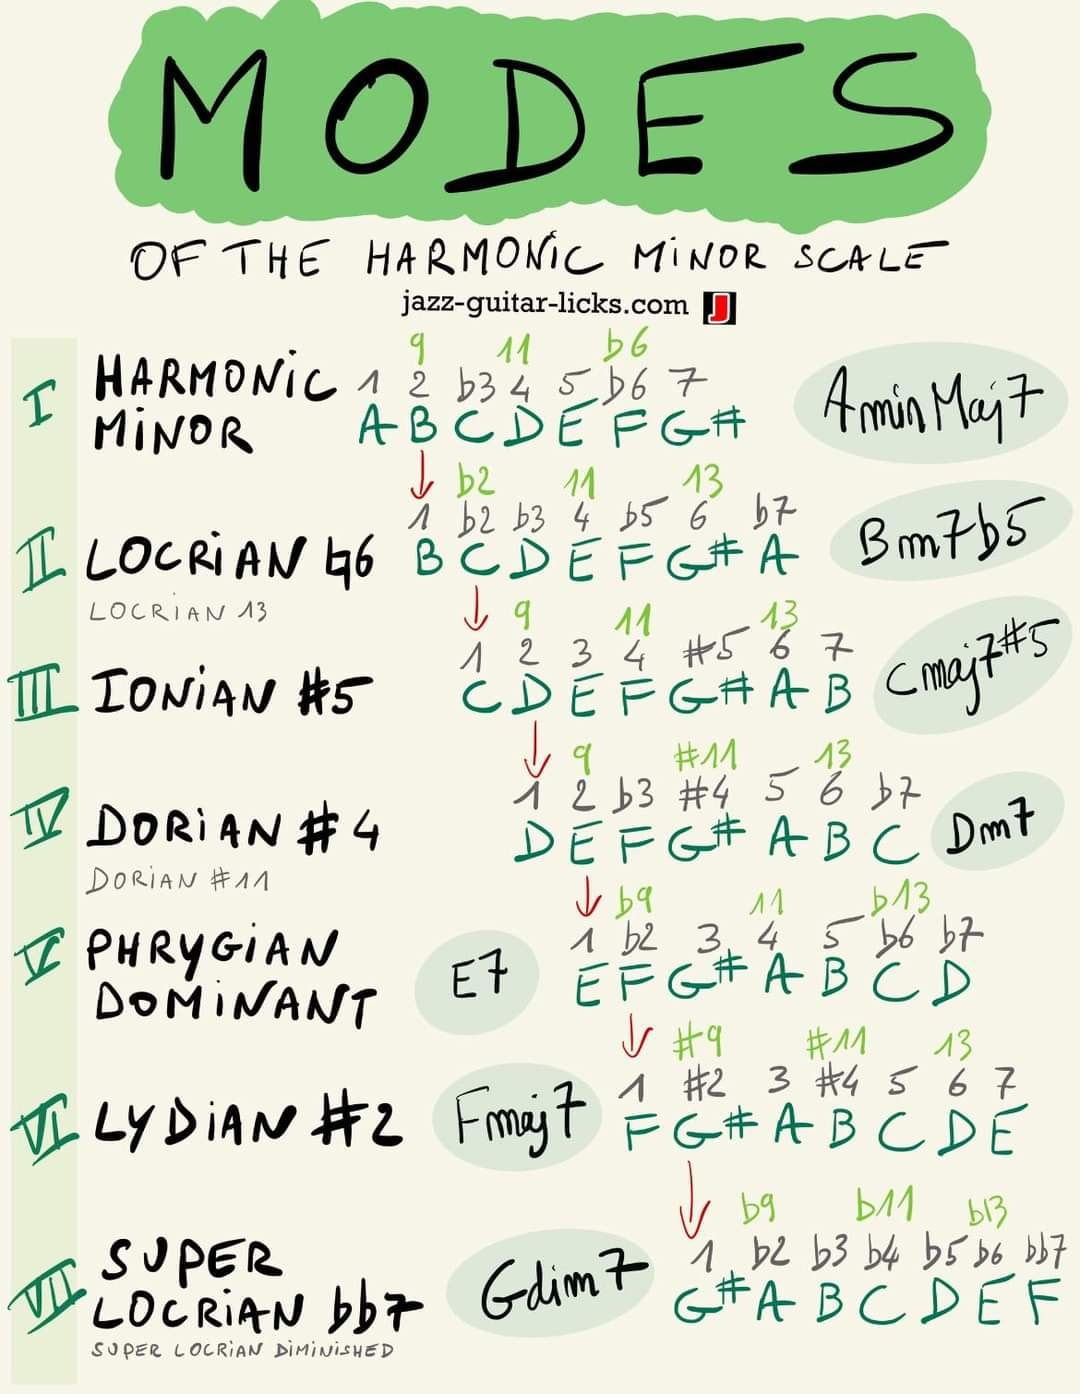 MODES
OF THE HARMONIC MINOR SCALE
jazz-guitar-licks.com J
9 11 b6
I HARMONIC 1 2 b3 4 5 b6 7
MINOR A B C D E F G#
AminMaj7
b2 11 13
1 b2 b3 4 b5 6 b7
II LOCRIAN ♮6 B C D E F G# A
Bm7b5
LOCRIAN 13
9 11 13
1 2 3 4 #5 6 7
III IONIAN #5 C D E F G# A B
Cmaj7#5
9 #11 13
1 2 b3 #4 5 6 b7
IV DORIAN #4 D E F G# A B C
Dm7
DORIAN #11
b9 11 b13
V PHRYGIAN 1 b2 3 4 5 b6 b7
DOMINANT E7 E F G# A B C D
#9 #11 13
1 #2 3 #4 5 6 7
VI LYDIAN #2 Fmaj7 F G# A B C D E
b9 b11 b13
SUPER 1 b2 b3 b4 b5 b6 bb7
VII LOCRIAN bb7 Gdim7 G# A B C D E F
SUPER LOCRIAN DIMINISHED